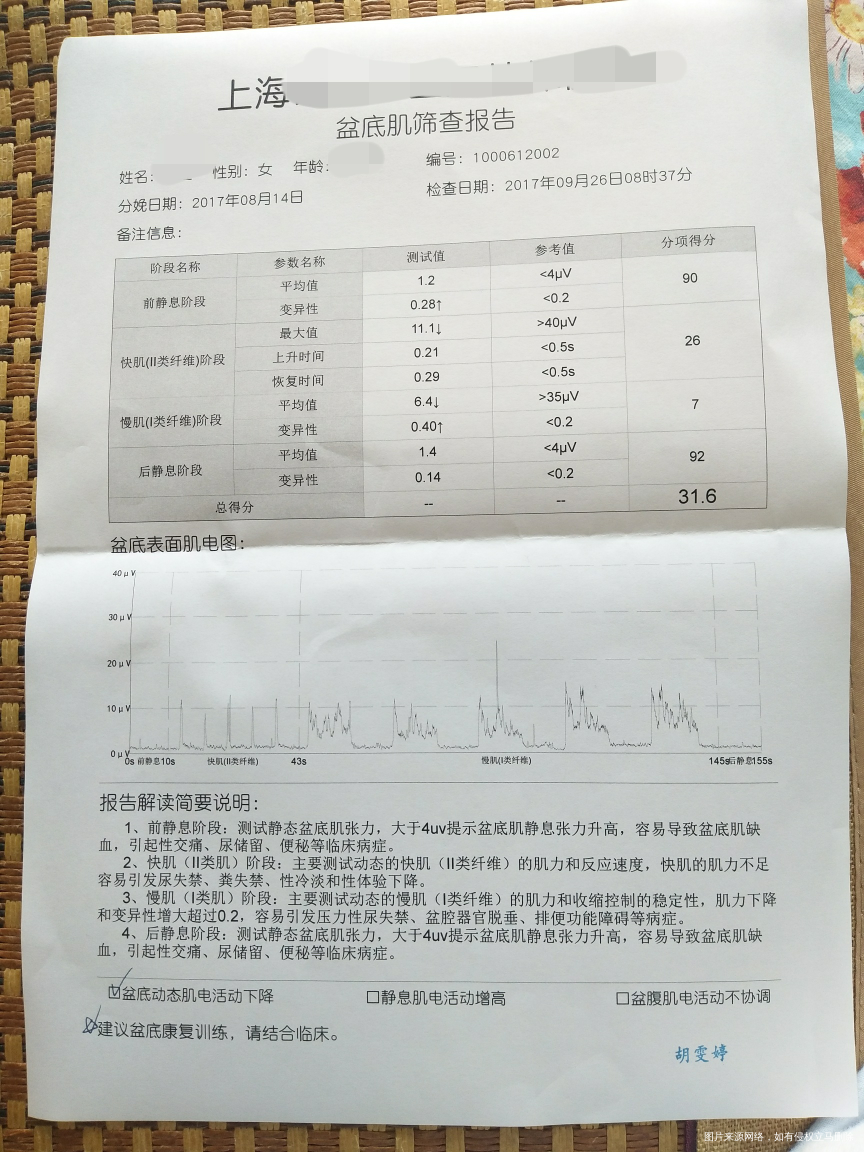 上海
盆底肌筛查报告
姓名: 性别: 女 年龄: 编号: 1000612002
分娩日期: 2017年08月14日 检查日期: 2017年09月26日08时37分
备注信息:
阶段名称 参数名称 测试值 参考值 分项得分
前静息阶段 平均值 1.2 <4μV 90
变异性 0.28↑ <0.2
快肌(II类纤维)阶段 最大值 11.1↓ >40μV 26
上升时间 0.21 <0.5s
恢复时间 0.29 <0.5s
慢肌(I类纤维)阶段 平均值 6.4↓ >35μV 7
变异性 0.40↑ <0.2
后静息阶段 平均值 1.4 <4μV 92
变异性 0.14 <0.2
总得分 -- -- 31.6
盆底表面肌电图:
40μV
30μV
20μV
10μV
0μV
0s 前静息 10s 快肌(II类纤维) 43s 慢肌(I类纤维) 145s 后静息 155s
报告解读简要说明:
1、前静息阶段：测试静态盆底肌张力，大于4uv提示盆底肌静息张力升高，容易导致盆底肌缺
血，引起性交痛、尿储留、便秘等临床病症。
2、快肌（II类肌）阶段：主要测试动态的快肌（II类纤维）的肌力和反应速度，快肌的肌力不足
容易引发尿失禁、粪失禁、性冷淡和性体验下降。
3、慢肌（I类肌）阶段：主要测试动态的慢肌（I类纤维）的肌力和收缩控制的稳定性，肌力下降
和变异性增大超过0.2，容易引发压力性尿失禁、盆腔器官脱垂、排便功能障碍等病症。
4、后静息阶段：测试静态盆底肌张力，大于4uv提示盆底肌静息张力升高，容易导致盆底肌缺
血，引起性交痛、尿储留、便秘等临床病症。
☑盆底动态肌电活动下降 □静息肌电活动增高 □盆腹肌电活动不协调
☑建议盆底康复训练，请结合临床。
胡雯婷
图片来源网络，如有侵权立马